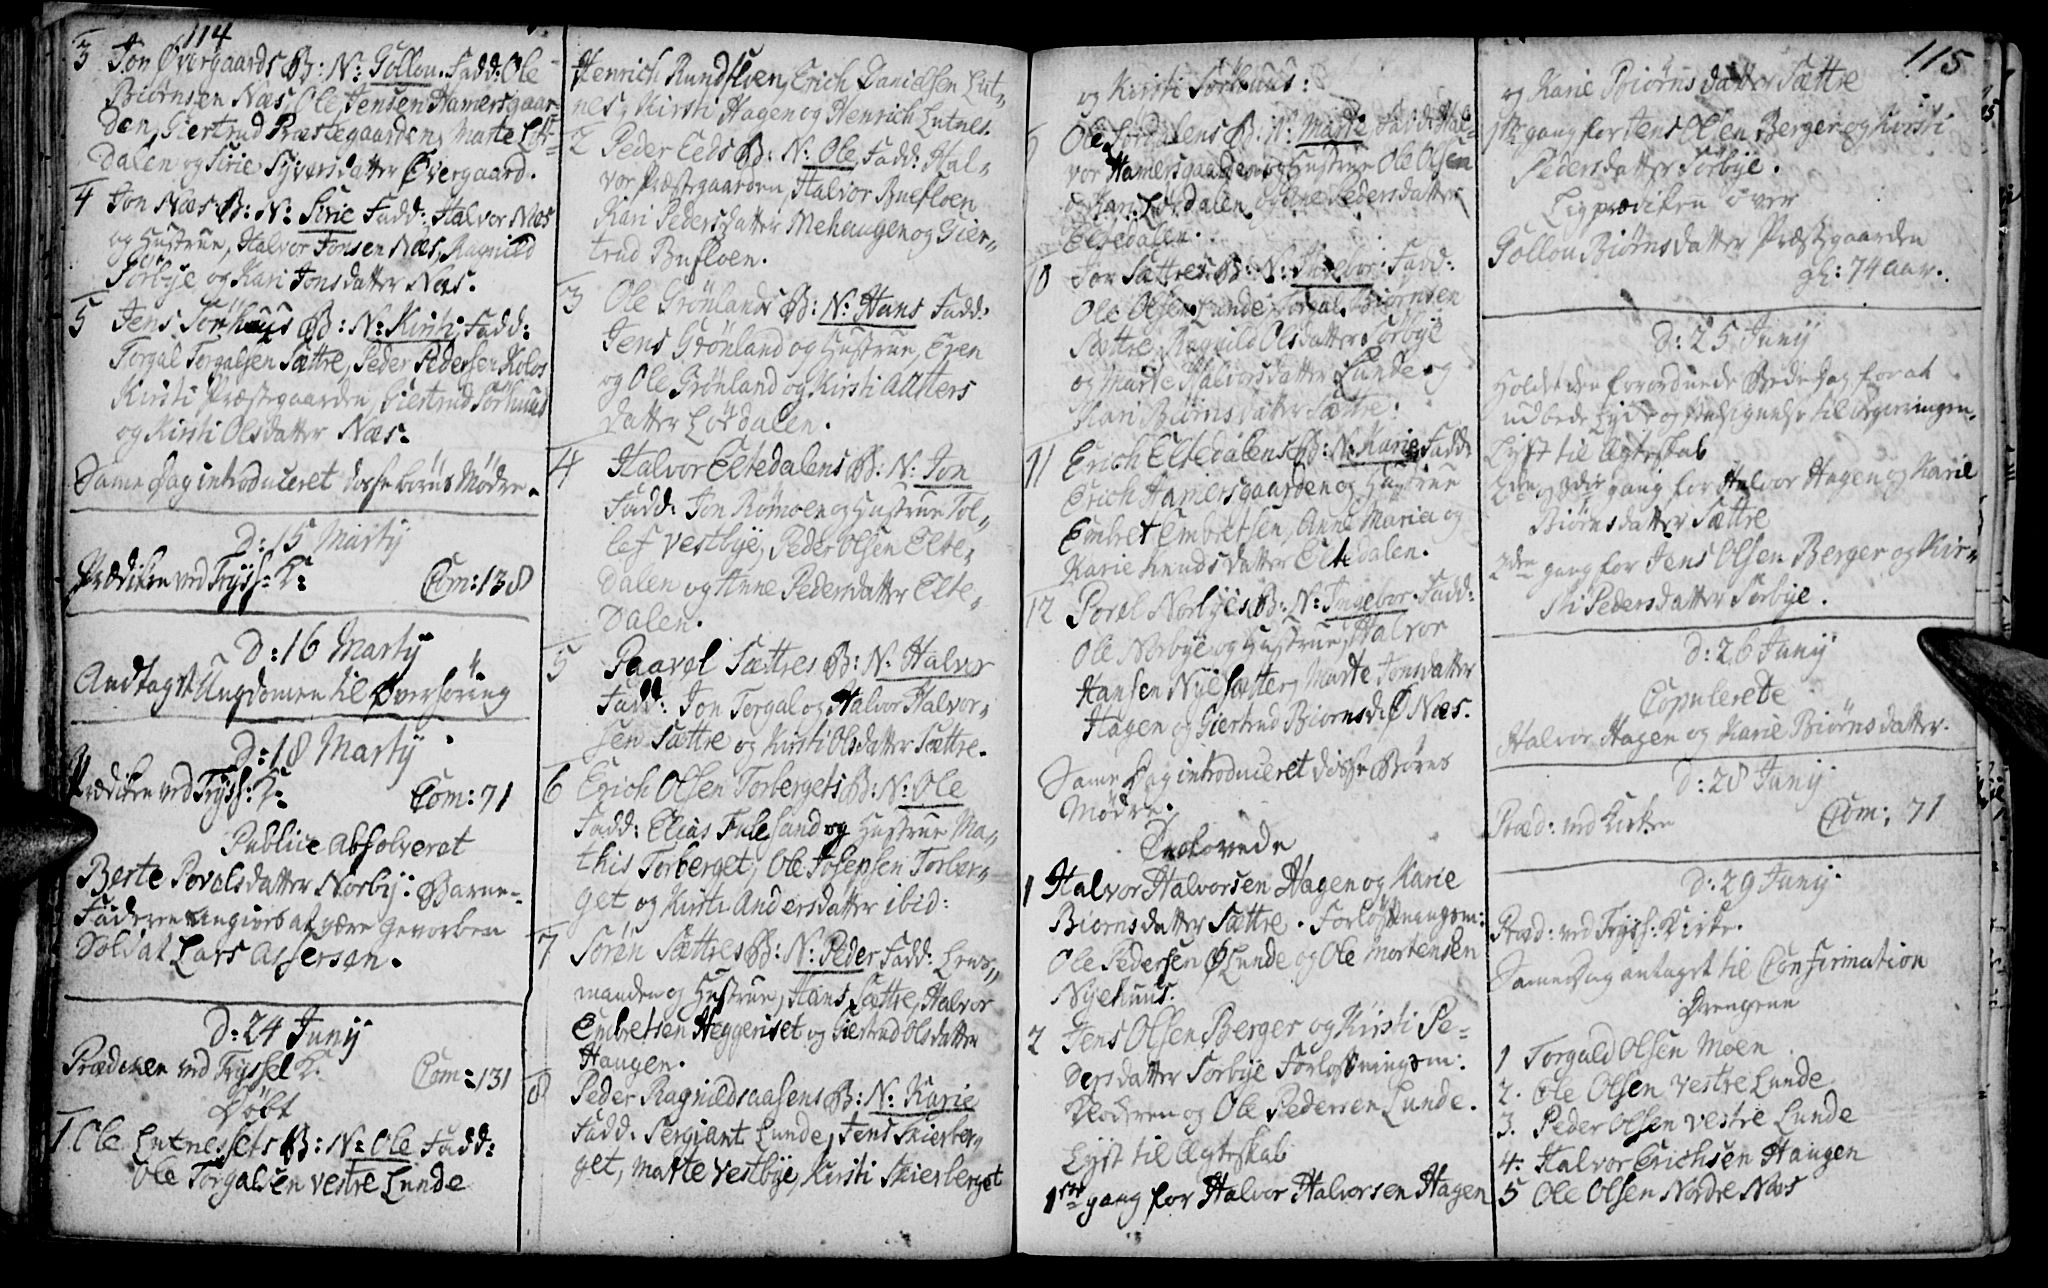 114
3 Jon Øvergaards B: N: Gollou. Fadd: Ole
Biörnsen Næs, Ole Jensen Hamersgaar-
den, Giertrud Præstegaarden, Marte Löf-
dalen og Sirie Syversdatter Øvergaard.
4 Jon Næs B: N: Sirie Fadd: Halvor Næs
og Hustrue, Halvor Jonsen Næs, Ragnild
Sørbye og Kari Jonsdatter Næs.
5 Jens Sörhuus B: N: Kirsti Fadd:
Torgal Torgalsen Sættre, Peder Pedersen Kolos
Kirsti Præstegaarden, Giertrud Sörhuus
og Kirsti Olsdatter Næs.
Same Dag introduceret disse börns Mødre.
D: 15 Martij
Prædiken ved Tryss: K: Com: 138
D: 16 Martij
Andtaget Ungdomen til Overhöring
D: 18 Martij
Prædiken ved Tryss: K: Com: 71
Publice absolveret
Berte Povelsdatter Norbij: Barne-
Faderen angives at være Gevorben
Soldat Lars Assersøn.
D: 24 Junij
Prædiken ved Tryssel K. Com: 131
Döbt
1 Ole Lutnessets B: N: Ole Fadd:
Ole Torgalsen vestre Lunde
Henrich Rundfloen, Erich Danielsen Lut-
nes, Kirsti Hagen og Henrich Lutnes.
2 Peder Eeds B: N: Ole Fadd: Hal-
vor Præstegaarden, Halvor Bufloen
Kari Pedersdatter Mehaugen og Gier-
trud Bufloen.
3 Ole Grönlands B: N: Hans Fadd:
Jens Grönland og Hustrue, Even
og Ole Grönland og Kirsti Anders
datter Lördalen.
4 Halvor Eltedalens B: N: Jon
Fadd: Jon Römoen og Hustrue Tol-
lef Vestbye, Peder Olsen Elte-
dalen og Anne Pedersdatter Elte-
dalen.
5 Paavel Sættres B: N: Halvor
Fadd: Jon Torgal og Halvor Halvor-
sen Sættre og Kirsti Olsdatter Sættre.
6 Erich Olsen Torbergets B: N: Ole
Fadd: Elias Fulesand og Hustrue Ma-
this Torberget, Ole Josepsen Torber-
get og Kirsti Andersdatter ibid:
7 Sören Sættres B: N: Peder Fadd: Lens-
manden og Hustrue, Hans Sættre, Halvor
Embretsen Heggeriset og Giertrud Olsdatter
Haugen.
8 Peder Ragnildsaasens B: N: Karie
Fadd. Sergiant Lunde, Jens Skierber-
get, Marte Vestbye, Kirsti Skierberget
og Kirsti Sörhuus:
9 Ole Lördalens B: N: Marte Fadd: Hal-
vor Hamersgaarden og Hustrue Ole Olsen
og Kari Lördalen og Ane Pedersdatter
Eltedalen.
10 Jon Sættres B: N: Ingebor. Fadd:
Ole Olsen Lunde, Torgal Biörnsen
Sættre, Ragnild Olsdatter Sörbye
og Marte Halvorsdatter Lunde og
Kari Biörnsdatter Sættre.
11 Erich Eltedalens B: N: Karie Fadd:
Erich Hamersgaarden og Hustrue
Embret Embretsen, Anne Maria og
Karie Knudsdatter Eltedalen.
12 Povel Norbyes B: N: Ingebor. Fadd:
Ole Norbye og Hustrue, Halvor
Hansen Nyesætter, Marte Jonsdatter
Hagen og Giertrud Biörnsd: Ø Næs.
Same Dag introduceret disse Börns
Mödre.
Trolovede
1 Halvor Halvorsen Hagen og Karie
Biörnsdatter Sættre. Forlöftningsm:
Ole Pedersen Ø Lunde og Ole Mortensen
Nyehuus.
2 Jens Olsen Berger og Kirsti Pe-
dersdatter Sorbye Forloftningsm:
Faderen og Ole Pedersen Lunde.
Lyst til Ægteskab
1ste gang for Halvor Halvorsen Hagen
115
og Karie Biörnsdatter Sættre
1ste gang for Jens Olsen Berger og Kirsti
Pedersdatter Sörbye.
Ligprædiken over
Gollou Biörnsdatter Præstegaarden
gl: 74 aar.
D: 25 Junij
Holdet den forordnede Bededag for at
udbede Lykke og Velsignelse til Regieringen.
Lyst til Ægteskab
2den og 3die gang for Halvor Hagen og Karie
Biörnsdatter Sættre
2den gang for Jens Olsen Berger og Kir-
sti Pedersdatter Sorbye.
D: 26 Junij
Copulerede
Halvor Hagen og Karie Biörnsdatter.
D: 28 Junij
Præd: ved Kirken Com: 71
D: 29 Junij
Præd: ved Tryss: Kirke.
Same Dag antaget til Confirmation
Drengene
1 Torgald Olsen Moen
2. Ole Olsen vestre Lunde
3. Peder Olsen vestre Lunde
4: Halvor Erichsen Haugen
5 Ole Olsen Nordre Næs